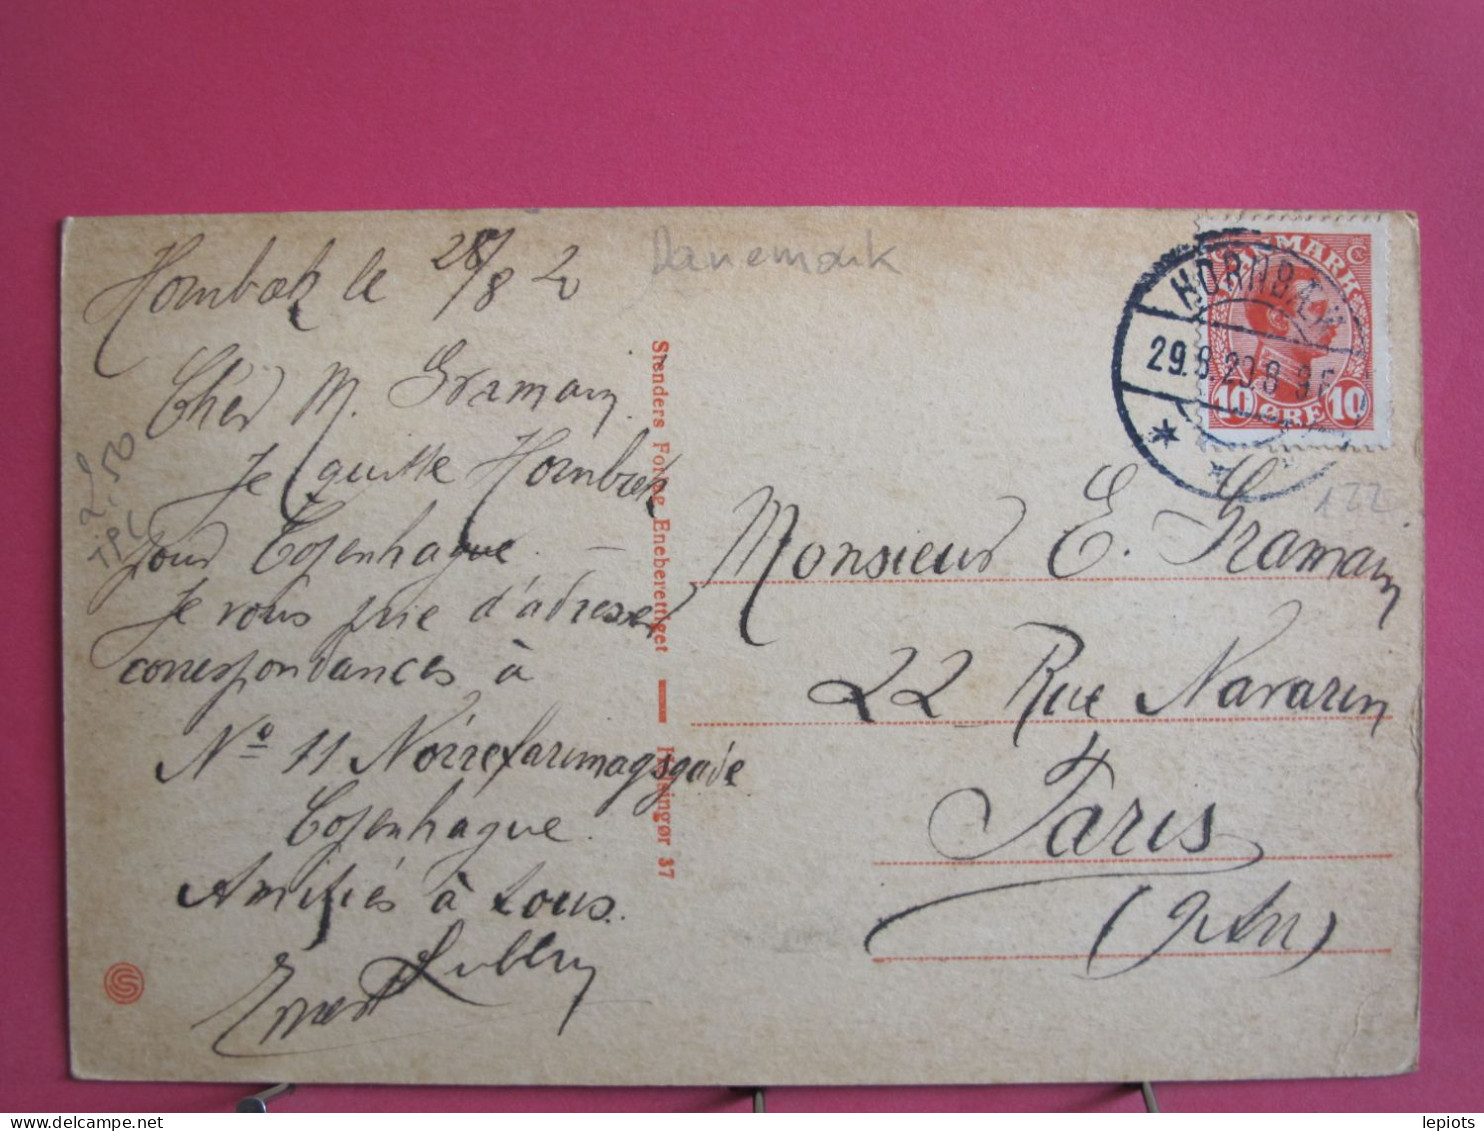 Hornbæk le 28/8 20
Danemark
Cher M. Gramain.
Je quitte Hornbæk
pour Copenhague. —
Je vous prie d'adresser
correspondances à
Nº 11 Nörrefarimagsgade
Copenhague.
Amitiés à tous.
Ernest
2,50
TPC
Stenders Forlag Eneberettiget — Helsingør 37
DANMARK
10 ØRE 10
HORNBÆK
29.8.20.8-9F
122
Monsieur E. Gramain
22 Rue Navarin
Paris
(9e Arr)
lepiots
delcampe.net